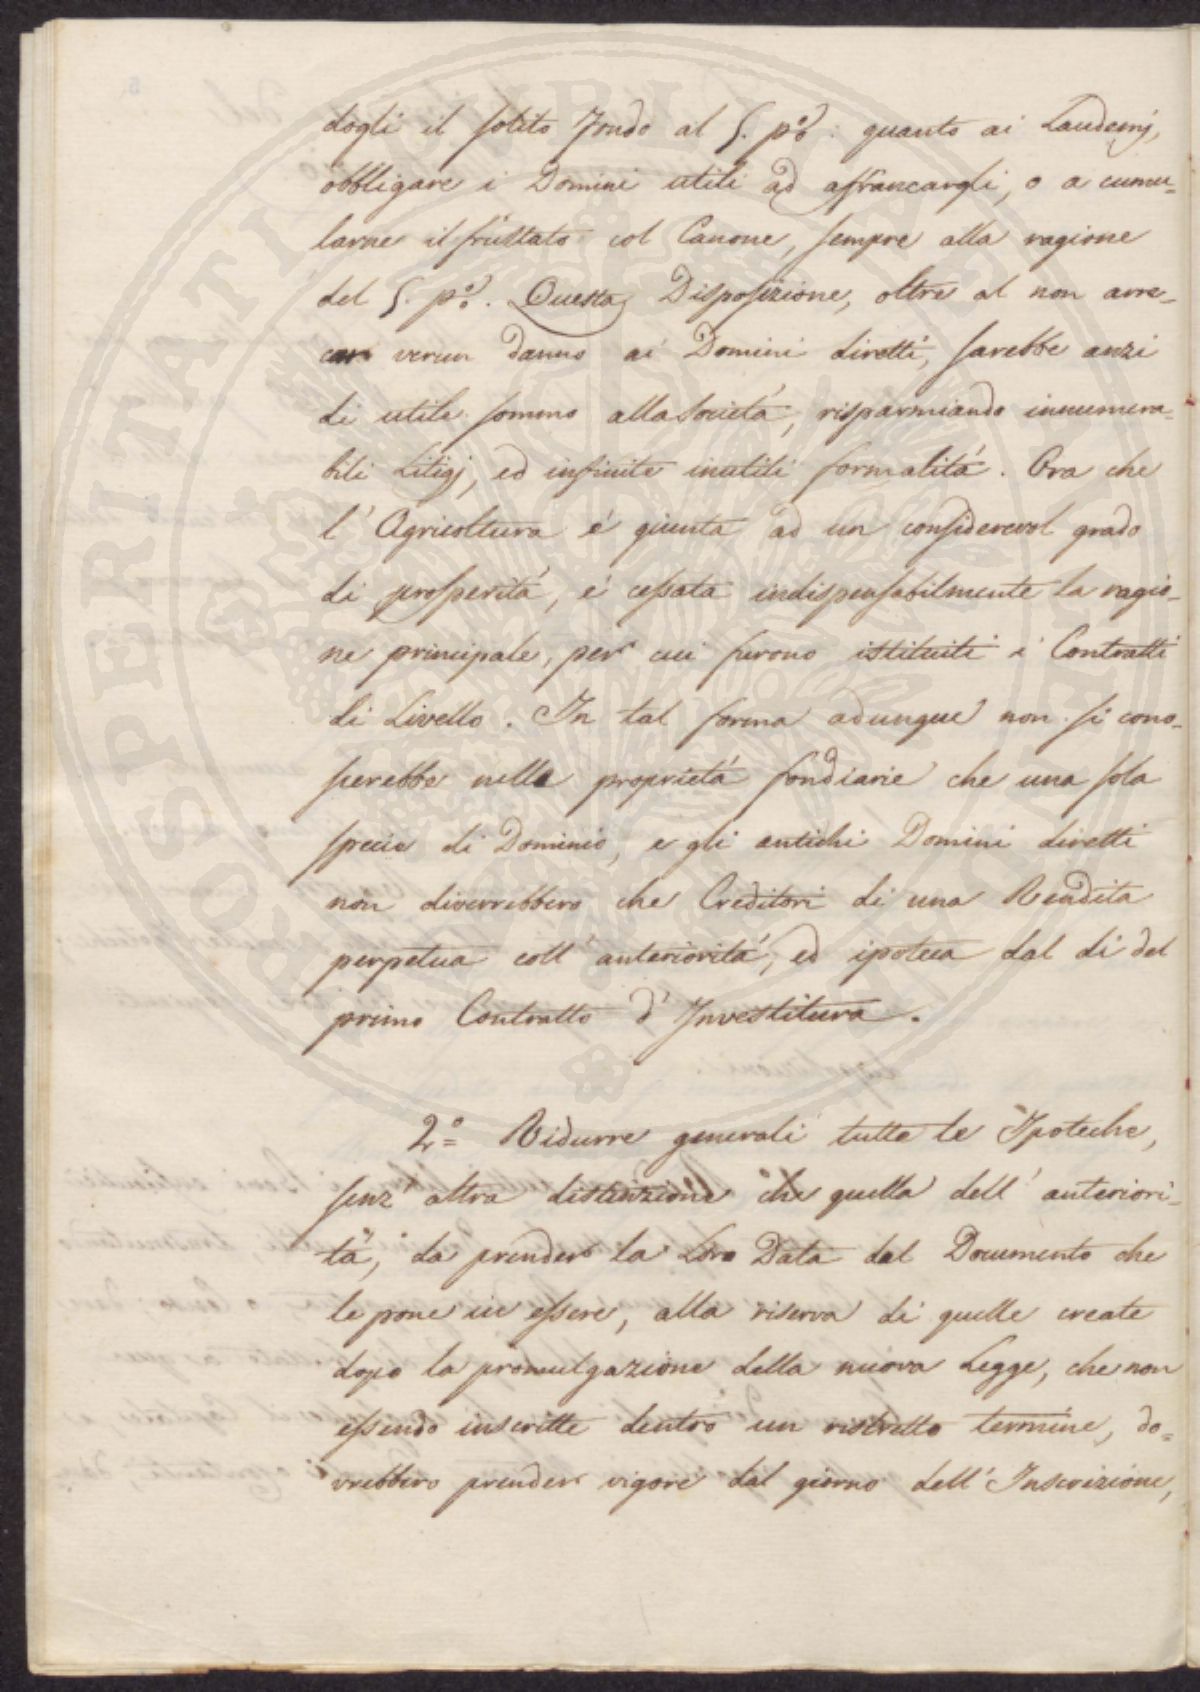 dogli il solito Fondo al 5. p%: quanto ai Laudemj,
obbligare i Domini utili ad affrancargli, o a cumu-
larne il fruttato col Canone, sempre alla ragione
del 5. p%. Questa Disposizione, oltre al non arre-
car verun danno ai Domini diretti, sarebbe anzi
di utile sommo alla Società, risparmiando innumera-
bili Litigj, ed infinite inutili formalità. Ora che
l'Agricoltura è giunta ad un considerevol grado
di prosperità, è cessata indispensabilmente la ragio-
ne principale, per cui furono istituiti i Contratti
di Livello. In tal forma adunque non si cono-
scerebbe nelle proprietà fondiarie che una sola
specie di Dominio, e gli antichi Domini diretti
non diverrebbero che Creditori di una Rendita
perpetua coll'anteriorità, ed ipoteca dal dì del
primo Contratto d'Investitura.
2.º Ridurre generali tutte le Ipoteche,
senz'altra distinzione che quella dell'anteriori-
tà, da prender la Loro Data dal Documento che
le pone in essere, alla riserva di quelle create
dopo la promulgazione della nuova Legge, che non
essendo inscritte dentro un ristretto termine, do-
vrebbero prender vigore dal giorno dell'Inscrizione,
PROSPERITATI PUBLICAE AUGENDAE